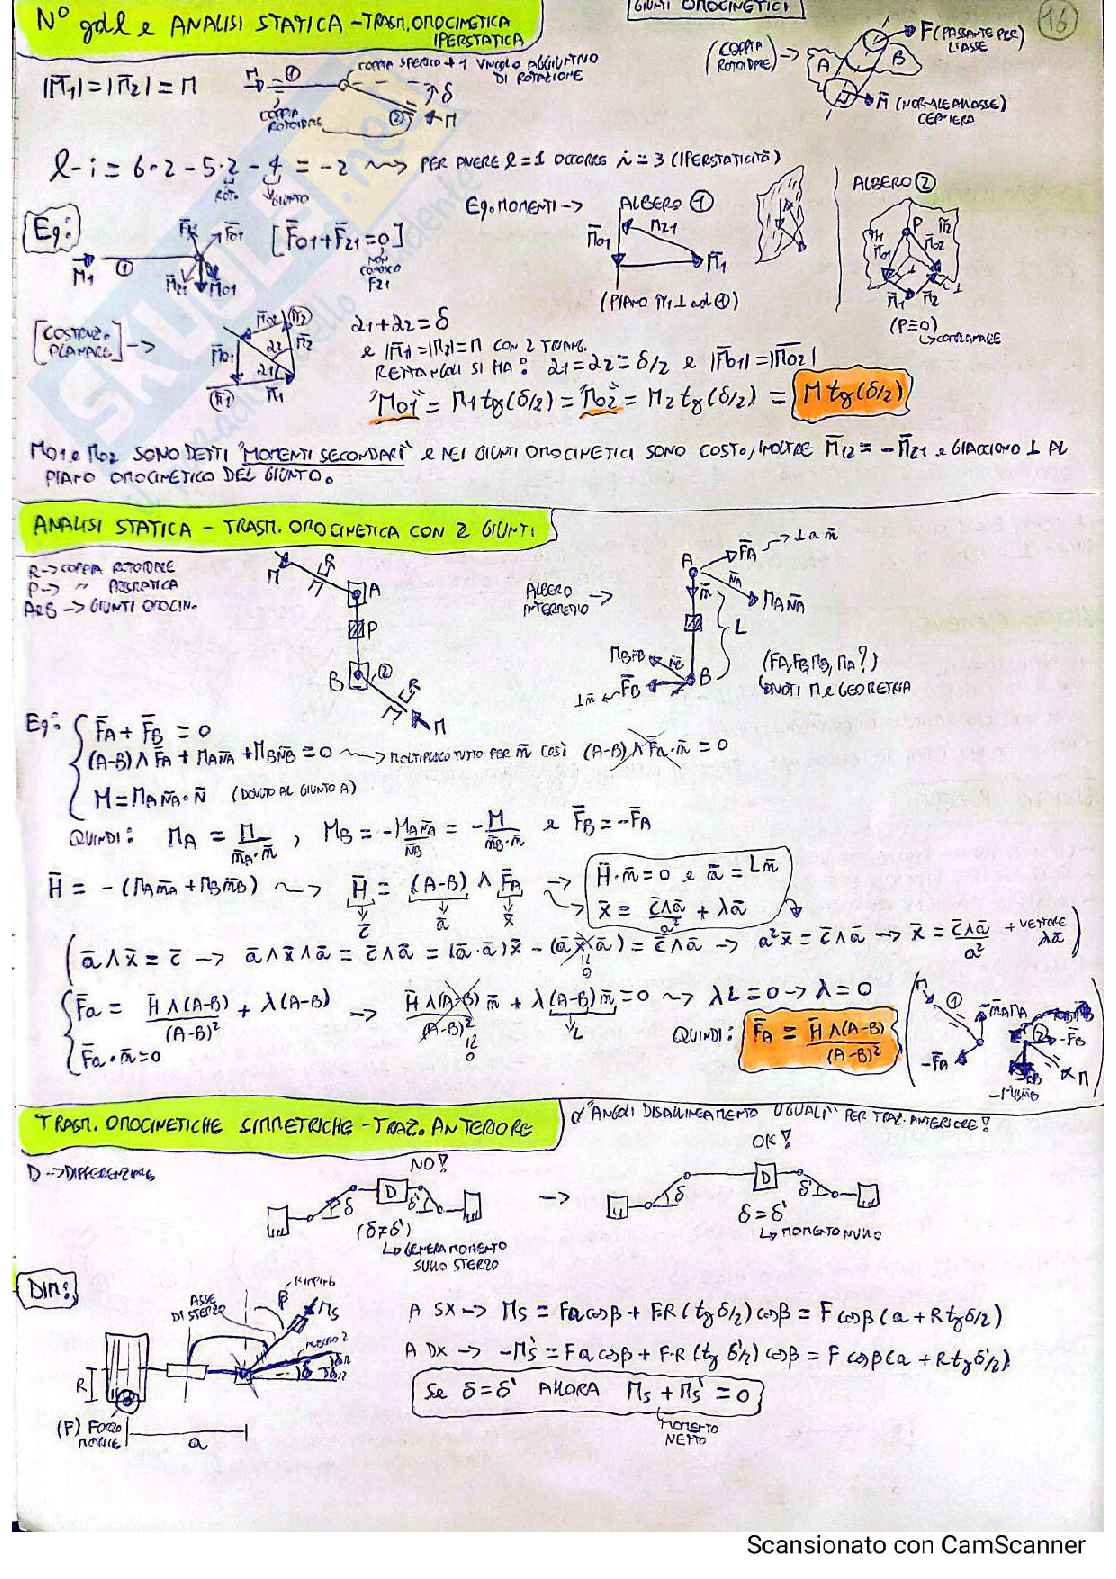 GIUNTI OMOCINETICI
16
N° gdl e ANALISI STATICA - TRASM. OMOCINETICA
IPERSTATICA
|M̄1| = |M̄2| = M
COPPIA SFERICO + 1 VINCOLO AGGIUNTIVO
DI ROTAZIONE
COPPIA
ROTOIDALE
M
①
②
δ
M
(COPPIA
ROTOIDALE)
A
B
F (PASSANTE PER
L'ASSE)
M̄ (NORMALE ALL'ASSE)
CERNIERA
l - i = 6·2 - 5·2 - 4 = -2 ⇝ PER AVERE l = 1 OCCORRE i = 3 (IPERSTATICITÀ)
ROT.
GIUNTO
Eq:
[F̄01 + F̄21 = 0]
NON
CONOSCO
F21
M̄1
①
F̄01
M̄21
M̄01
Eq. MOMENTI →
ALBERO ①
M̄01
M21
M̄1
(PIANO M̄1 ⊥ ad ①)
ALBERO ②
P
M̄02
M̄1
M̄2
(P≡O)
COMPLANARE
[COSTRUZ.
PLANARE] →
α1 + α2 = δ
e |M̄1| = |M̄2| = M CON 2 TRIANG.
RETTANGOLI SI HA: α1 = α2 = δ/2 e |M̄01| = |M̄02|
"M01" = M1 tg(δ/2) = "M02" = M2 tg(δ/2) = M tg(δ/2)
M01 e M02 SONO DETTI "MOMENTI SECONDARI" e NEI GIUNTI OMOCINETICI SONO COST., INOLTRE M̄12 = -M̄21 e GIACCIONO ⊥ AL
PIANO OMOCINETICO DEL GIUNTO.
ANALISI STATICA - TRASM. OMOCINETICA CON 2 GIUNTI
R → COPPIA ROTOIDALE
P → " PRISMATICA
A e B → GIUNTI OMOCIN.
M
R
A
P
B
②
R
M
ALBERO
INTERMEDIO →
A
F̄A → ⊥ a n̄
MA n̄A
L
MB n̄B
⊥ n̄ ← F̄B
B
(FA, FB, MB, MA?)
NOTI M e GEOMETRIA
Eq: F̄A + F̄B = 0
(A-B) ∧ F̄A + MA n̄A + MB n̄B = 0 ⇝ MOLTIPLICO TUTTO PER n̄ COSÌ (A-B) ∧ F̄A · n̄ = 0
M = MA n̄A · N̄ (DOVUTO AL GIUNTO A)
QUINDI: MA = M / n̄A · n̄ , MB = - MA n̄A / n̄B = - M / n̄B · n̄ e F̄B = -F̄A
H̄ = -(MA n̄A + MB n̄B) ⇝ H̄ = (A-B) ∧ F̄A → H̄ · n̄ = 0 e ā = L n̄
c̄ ā x̄ x̄ = c̄∧ā / a² + λā
(ā ∧ x̄ = c̄ → ā ∧ x̄ ∧ ā = c̄ ∧ ā = (ā·ā) x̄ - (ā x̄ ā) = c̄ ∧ ā → a² x̄ = c̄ ∧ ā → x̄ = c̄∧ā / a² + VETTORE λā)
F̄a = H̄ ∧ (A-B) / (A-B)² + λ(A-B) → H̄ ∧ (A-B) / (A-B)² n̄ + λ(A-B) n̄ = 0 ⇝ λL = 0 → λ = 0
F̄a · n̄ = 0
QUINDI: F̄A = H̄ ∧ (A-B) / (A-B)²
M
①
n̄A MA
-F̄A
②
-F̄B
M
TRASM. OMOCINETICHE SIMMETRICHE - TRAZ. ANTERIORE
"ANGOLI DISALLINEAMENTO UGUALI" PER TRAZ. ANTERIORE!
D → DIFFERENZIALE
NO!
D
δ
δ'
(δ≠δ')
GENERA MOMENTO
SULLO STERZO
→
OK!
D
δ
δ'
δ = δ'
MOMENTO NULLO
Dim:
ASSE
DI STERZO
β
MS
δ
δ/2
R
(F) FORZA
MOTRICE
a
A SX → MS = Fa cosβ + F·R (tg δ/2) cosβ = F cosβ (a + R tg δ/2)
A DX → -M'S = Fa cosβ + F·R (tg δ'/2) cosβ = F cosβ (a + R tg δ'/2)
Se δ = δ' ALLORA MS + M'S = 0
MOMENTO
NETTO
Scansionato con CamScanner